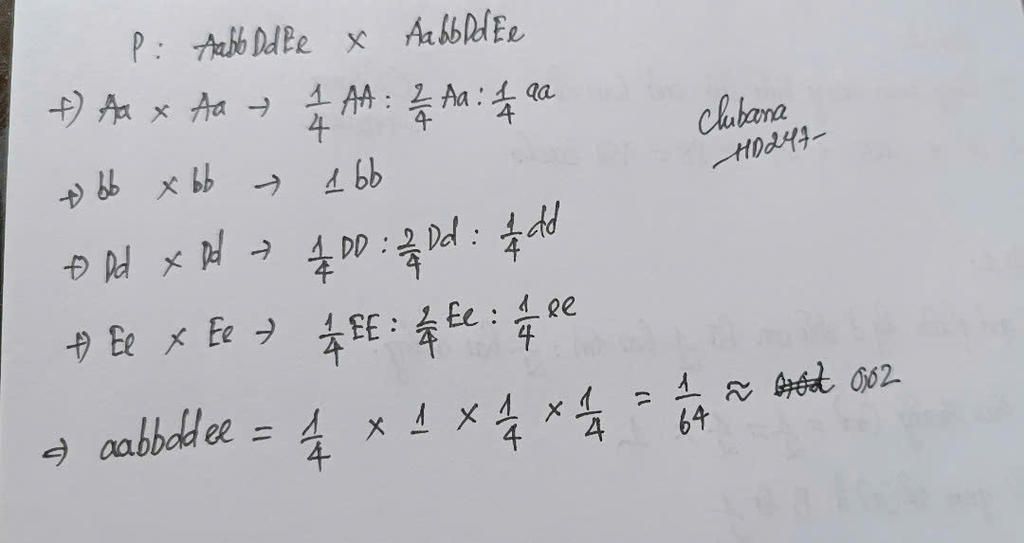 P: AabbDdEe x AabbDdEe
+) Aa x Aa → 1/4 AA : 2/4 Aa : 1/4 aa
Chibana
HD247
+) bb x bb → 1 bb
+) Dd x Dd → 1/4 DD : 2/4 Dd : 1/4 dd
+) Ee x Ee → 1/4 EE : 2/4 Ee : 1/4 ee
⇒ aabbddee = 1/4 x 1 x 1/4 x 1/4 = 1/64 ≈ 0,02